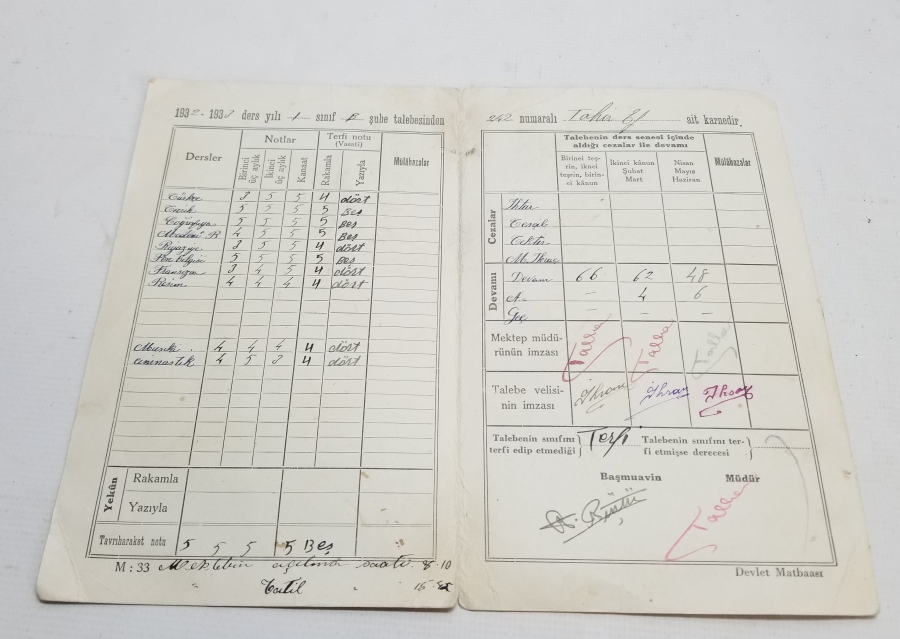 1932 - 1933 ders yılı 1 sınıf B şube talebesinden
Dersler Notlar Terfi notu (Vasati) Mülâhazalar
Birinci üç aylık İkinci üç aylık Kanaat Rakamla Yazıyla
Türkçe 3 5 5 4 dört
5 5 5 5 Beş
Coğrafya 5 5 5 5 Beş
4 5 5 5 Beş
Riyaziye 3 5 5 4 dört
Fen bilgisi 5 5 5 5 Beş
Fransızca 3 4 5 4 dört
Resim 4 4 4 4 dört
Musiki 4 4 4 4 dört
4 5 3 4 dört
Yekûn Rakamla
Yazıyla
Tavrıhareket notu 5 5 5 5 Beş
M : 33 Mektebin açılma saati 8-10
" Tatil
242 numaralı Tahir Ef ait karnedir.
Talebenin ders senesi içinde
aldığı cezalar ile devamı
Mülâhazalar
Birinci teş-
rin, ikinci
teşrin, birin-
ci kânun
İkinci kânun
Şubat
Mart
Nisan
Mayıs
Haziran
Cezalar
Devamı Devam 66 62 48
A. – 4 6
Geç – –
Mektep müdü-
rünün imzası
Talha Talha Talha
Talebe velisi-
nin imzası
İhsan İhsan İhsan
Talebenin sınıfını
terfi edip etmediği
Terfi
Talebenin sınıfını ter-
fi etmişse derecesi
Başmuavin Müdür
Talha
Devlet Matbaası